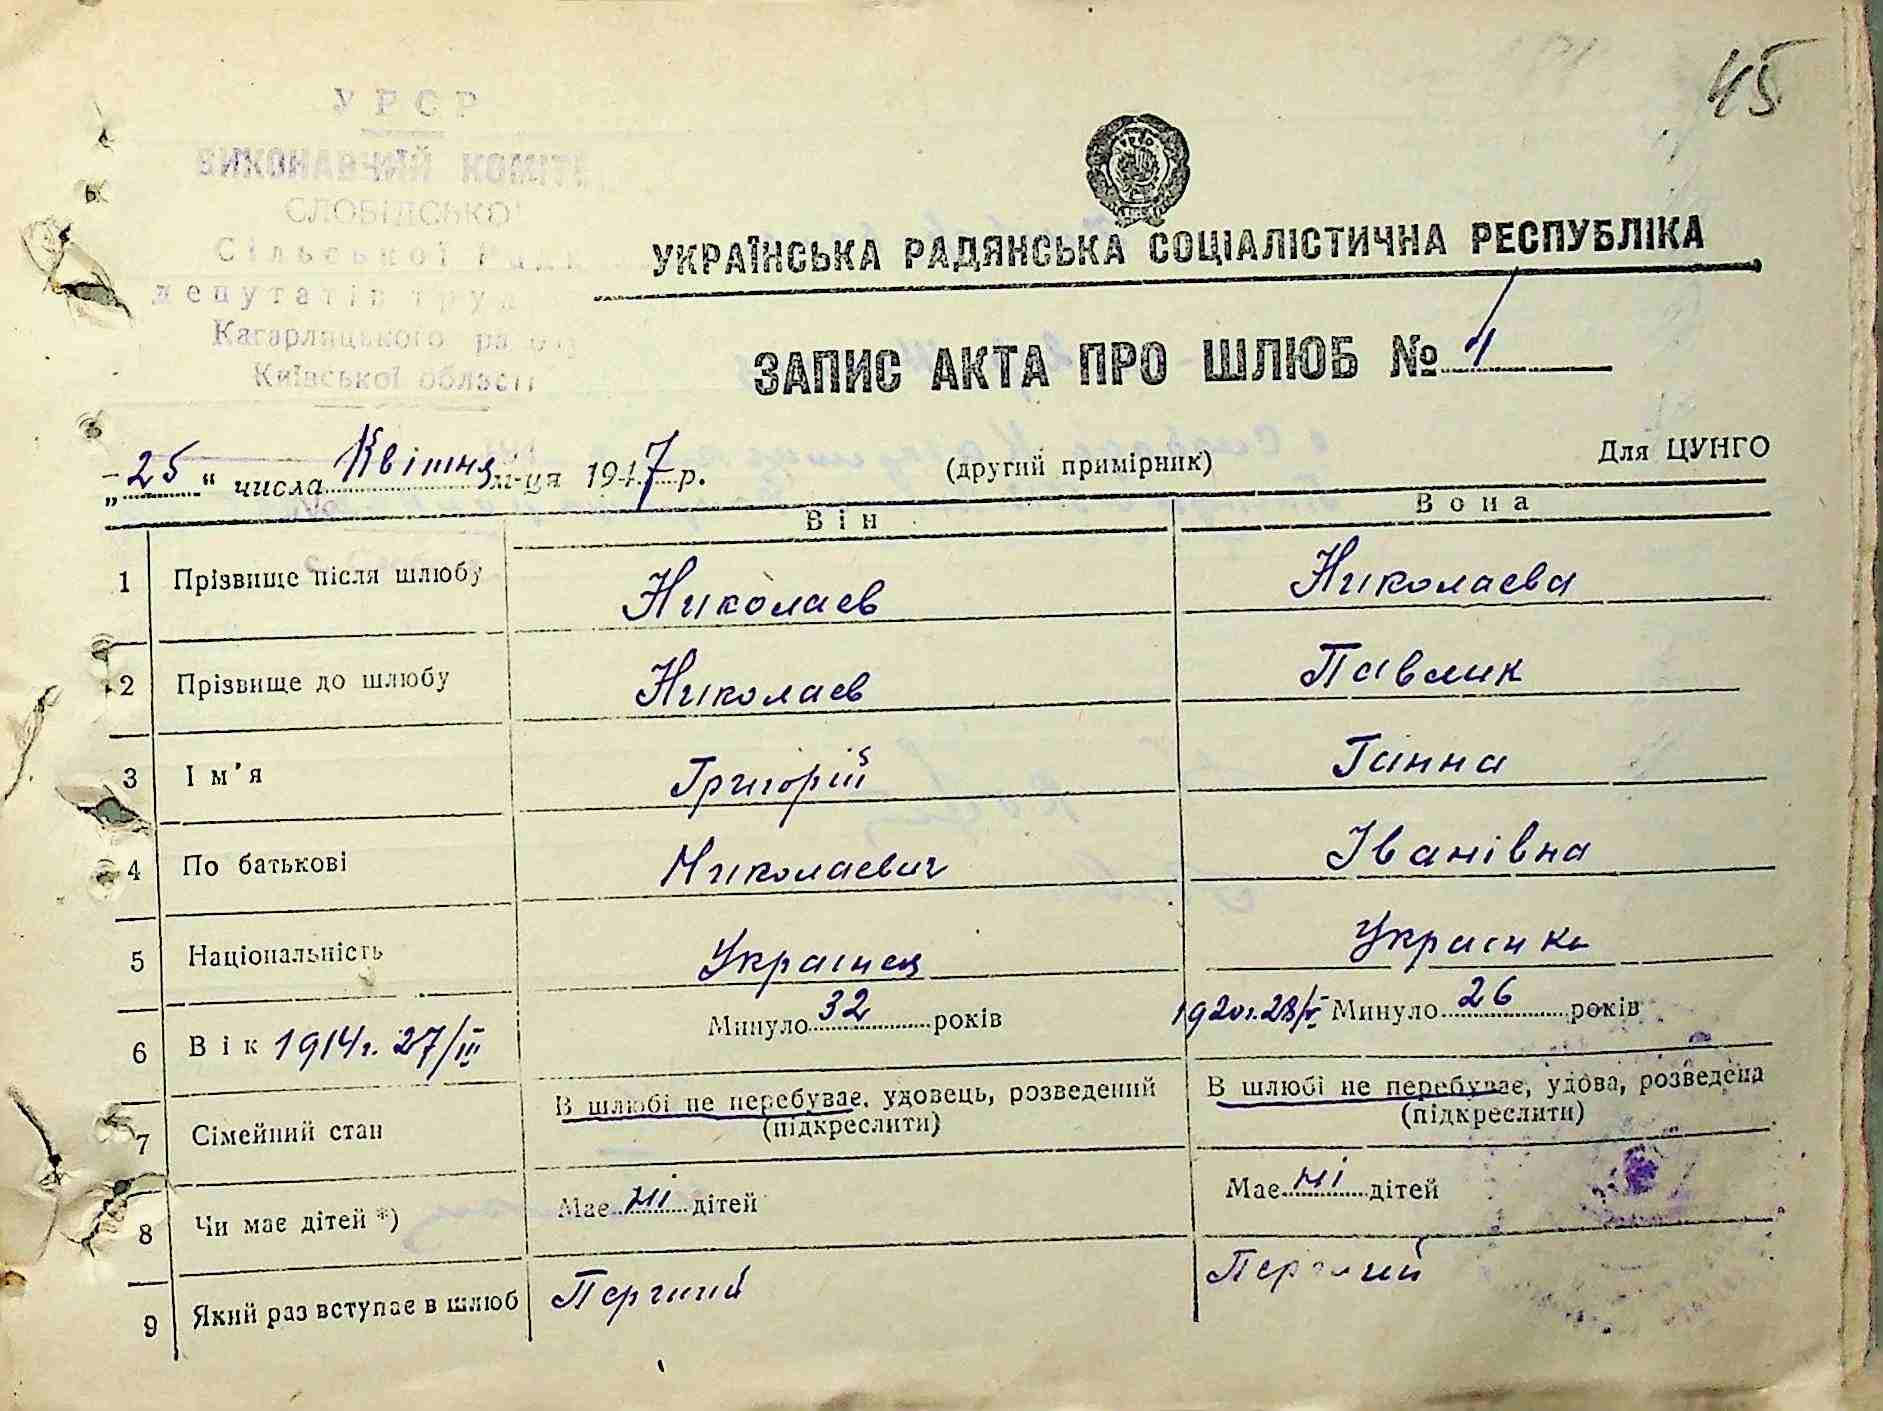 45
УРСР
ВИКОНАВЧИЙ КОМІТЕ
СЛОБІДСЬКОЇ
Сільської Ради
депутатів труд
Кагарлицького району
Київської області
УКРАЇНСЬКА РАДЯНСЬКА СОЦІАЛІСТИЧНА РЕСПУБЛІКА
ЗАПИС АКТА ПРО ШЛЮБ № 1
„25“ числа Квітня м-ця 1947 р. (другий примірник) Для ЦУНГО
Він Вона
1 Прізвище після шлюбу Николаев Николаева
2 Прізвище до шлюбу Николаев Павлик
3 Ім’я Григорій Ганна
4 По батькові Николаевич Іванівна
5 Національність Украінец Украінка
6 Вік 1914г. 27/III Минуло 32 років 1920г. 28/V Минуло 26 років
7 Сімейний стан В шлюбі не перебуває, удовець, розведений В шлюбі не перебуває, удова, розведена
(підкреслити) (підкреслити)
8 Чи має дітей *) Має ні дітей Має ні дітей
9 Який раз вступає в шлюб Перший Перший